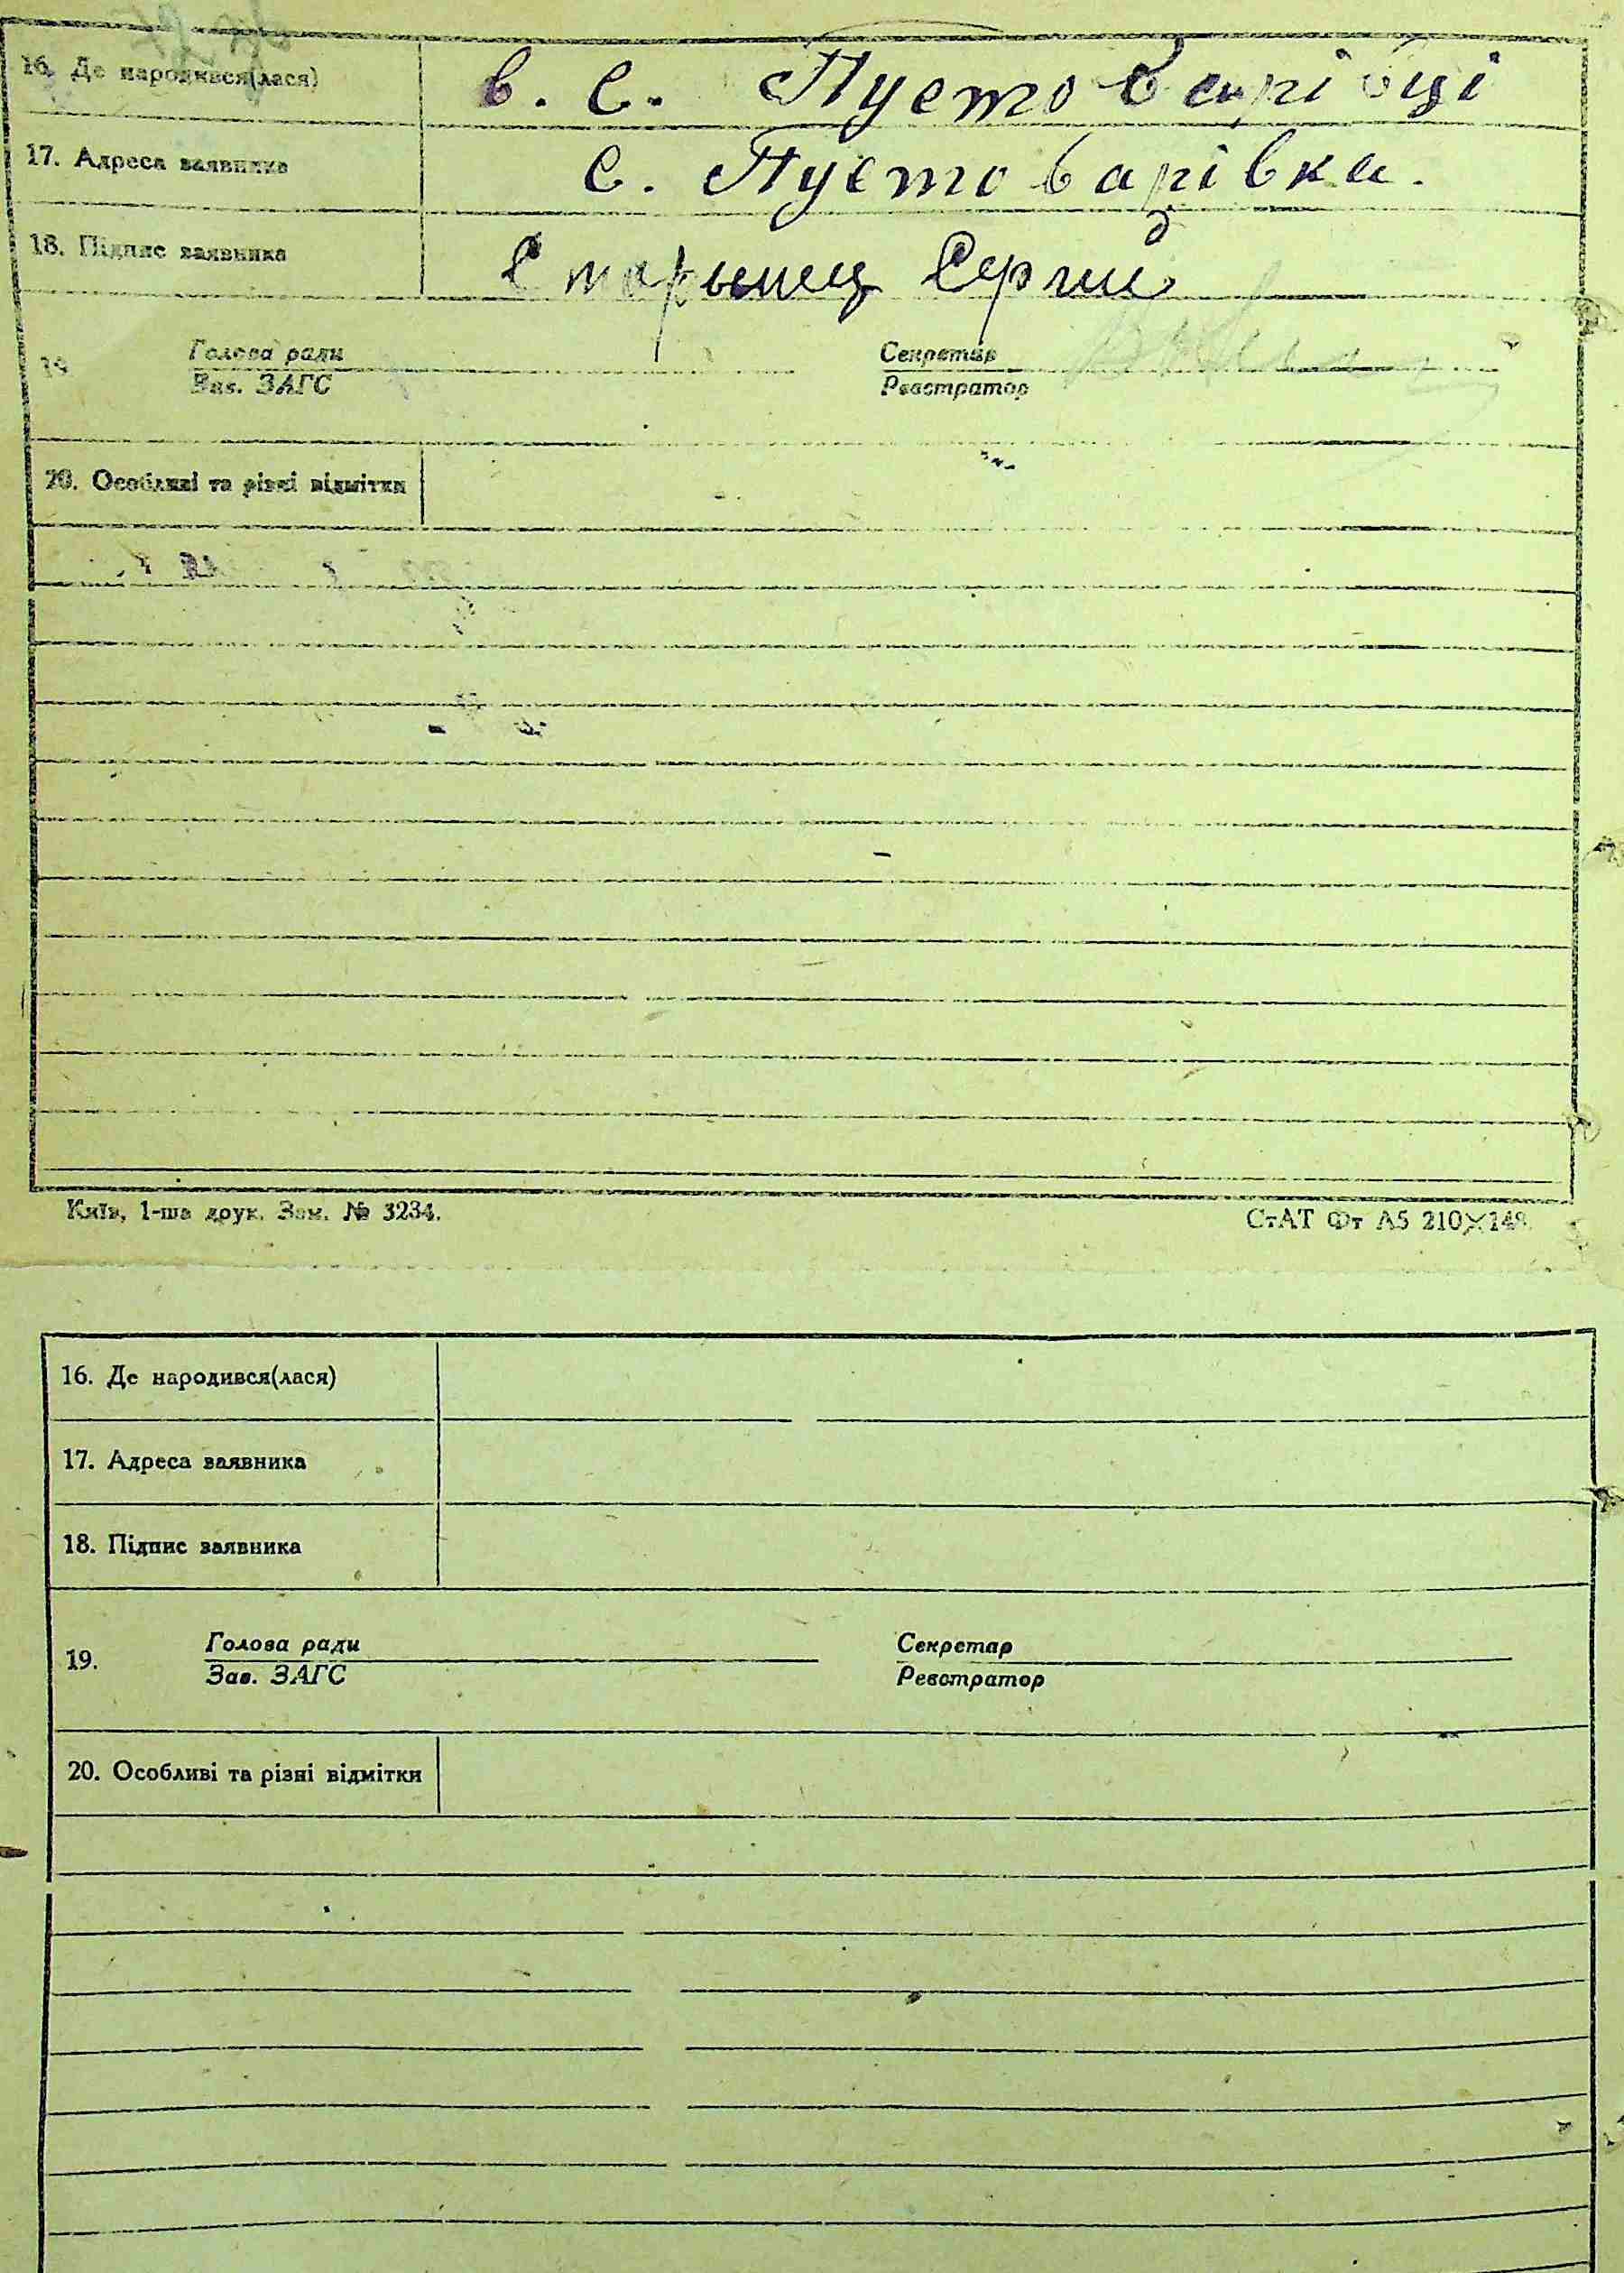 16. Де народився(лася) в. с. Пустоварівці
17. Адреса заявника с. Пустоварівка.
18. Підпис заявника Старынец Сергий
19 Голова ради Секретар
Зав. ЗАГС Реєстратор
20. Особливі та різні відмітки
Київ, 1-ша друк. Зам. № 3234. СтАТ Фт А5 210×148
16. Де народився(лася)
17. Адреса заявника
18. Підпис заявника
19. Голова ради Секретар
Зав. ЗАГС Реєстратор
20. Особливі та різні відмітки